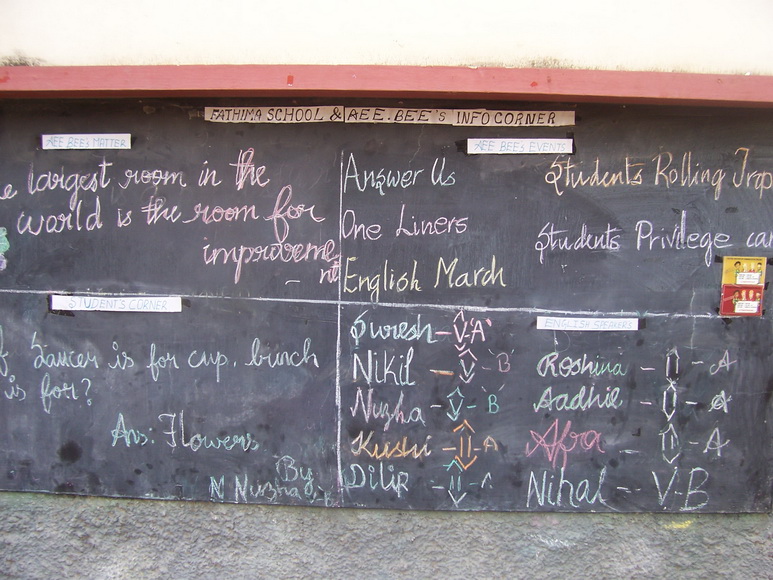 FATHIMA SCHOOL & AEE.BEE'S INFO CORNER
AEE BEE'S MATTER
e largest room in the
world is the room for
improveme
nt
AEE BEE'S EVENTS
Answer Us
One Liners
English March
Students Rolling Trop
Students Privilege car
STUDENT'S CORNER
f Saucer is for cup, bunch
is for?
Ans: Flowers
By
N Nuzha
ENGLISH SPEAKERS
Suresh - V 'A'
Nikil - V - 'B'
Nuzha - V - B
Kushi - II - A
Dilip - II - A
Roshina - II - A
Aadhil - II - A
Afra - II - A
Nihal - V-B